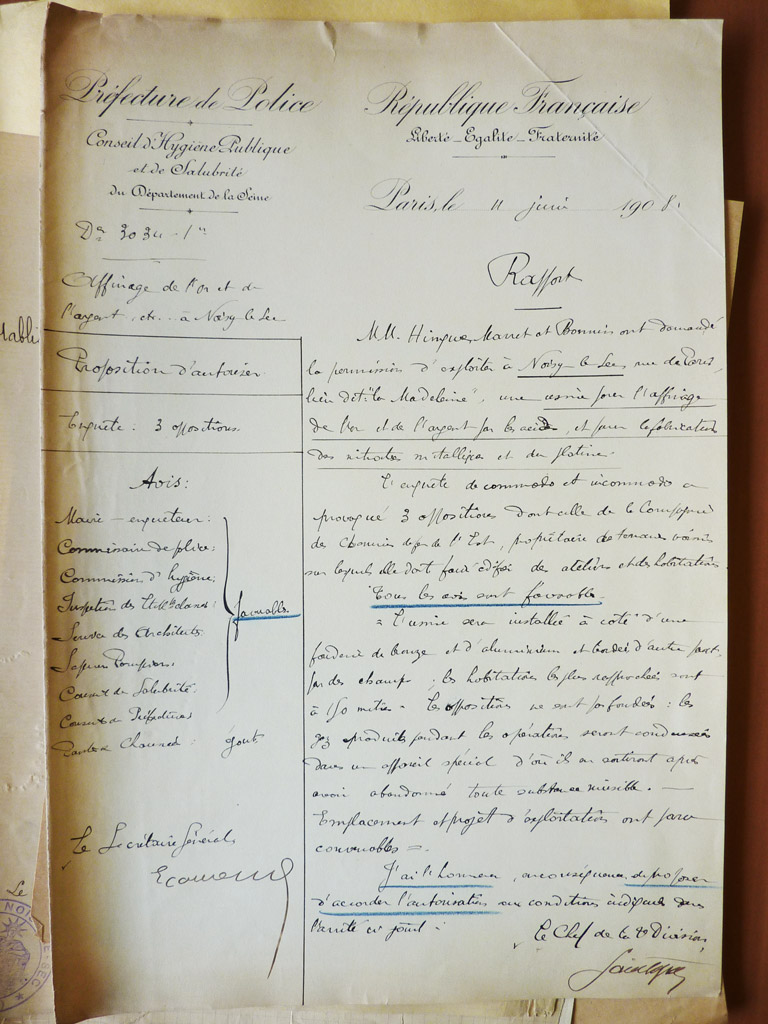 Préfecture de Police
Conseil d'Hygiène Publique
et de Salubrité
du Département de la Seine
Affinage de l'or et de
l'argent, etc... à Noisy-le-Sec
Proposition d'autoriser
Enquête : 3 oppositions
Avis :
Maire - enquêteur :
Commissaire de police :
Commission d'hygiène :
Inspection des Etab^ts classés :
favorables
Service des Architectes
Sapeurs Pompiers
Conseil de Salubrité
Conseil de Préfecture
Ponts & Chaussées :
Le Secrétaire Général,
République Française
Liberté - Egalité - Fraternité
Paris, le 11 juin 1908.
Rapport
MM. Marret et Bonnin ont demandé
la permission d'exploiter à Noisy-le-Sec, rue de Paris,
lieu dit "la Madeleine", une usine pour l'affinage
de l'or et de l'argent par les acides, et pour la fabrication
des nitrates métalliques et du platine.
L'enquête de commodo et incommodo a
provoqué 3 oppositions dont celle de la Compagnie
des Chemins de fer de l'Est, propriétaire de terrains voisins
sur lesquels elle doit faire édifier des ateliers et des habitations
Tous les avis sont favorables.
L'usine sera installée à côté d'une
fonderie de bronze et d'aluminium et bordée d'autre part
par des champs ; les habitations les plus rapprochées sont
à 150 mètres - Les oppositions ne sont pas fondées : les
gaz produits pendant les opérations seront condensés
dans un appareil spécial d'où ils en sortiront après
avoir abandonné toute substance nuisible. -
Emplacement et projet d'exploitation ont paru
convenables =.
J'ai l'honneur, en conséquence, de proposer
d'accorder l'autorisation aux conditions indiquées dans
l'arrêté ci-joint :
Le Chef de la 2e Division,